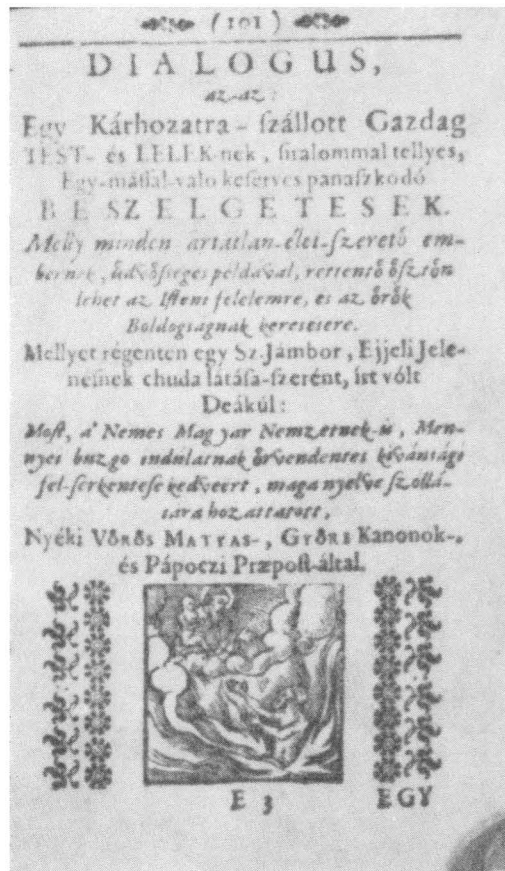 ( 101 )
DIALOGUS,
az-az:
Egy Kárhozatra-ſzállott Gazdag
TEST- és LELEK-nek, ſiralommal tellyes,
Egy-máſſal-való keſerves panaſzkodó
BESZELGETESEK.
Melly minden artatlan-élet-ſzerető em-
bernek, üdvöſſeges példával, rettentő öſztön
lehet az Iſteni felelemre, es az örök
Boldogsagnak keresesere.
Mellyet régenten egy Sz. Jámbor, Ejjeli Jele-
neſnek chuda látáſa-ſzerént, írt vólt
Deákúl:
Moſt, a' Nemes Magyar Nemzetnek-is, Men-
nyei buzgo indulatnak örvendentes kivánsági
fel-ſerkenteſe kedveert, maga nyelve ſzollá-
sara hozattatott,
Nyéki Vőrős MATYAS-, GYŐRI Kanonok-,
és Pápoczi Præpoſt-által.
E 3 EGY